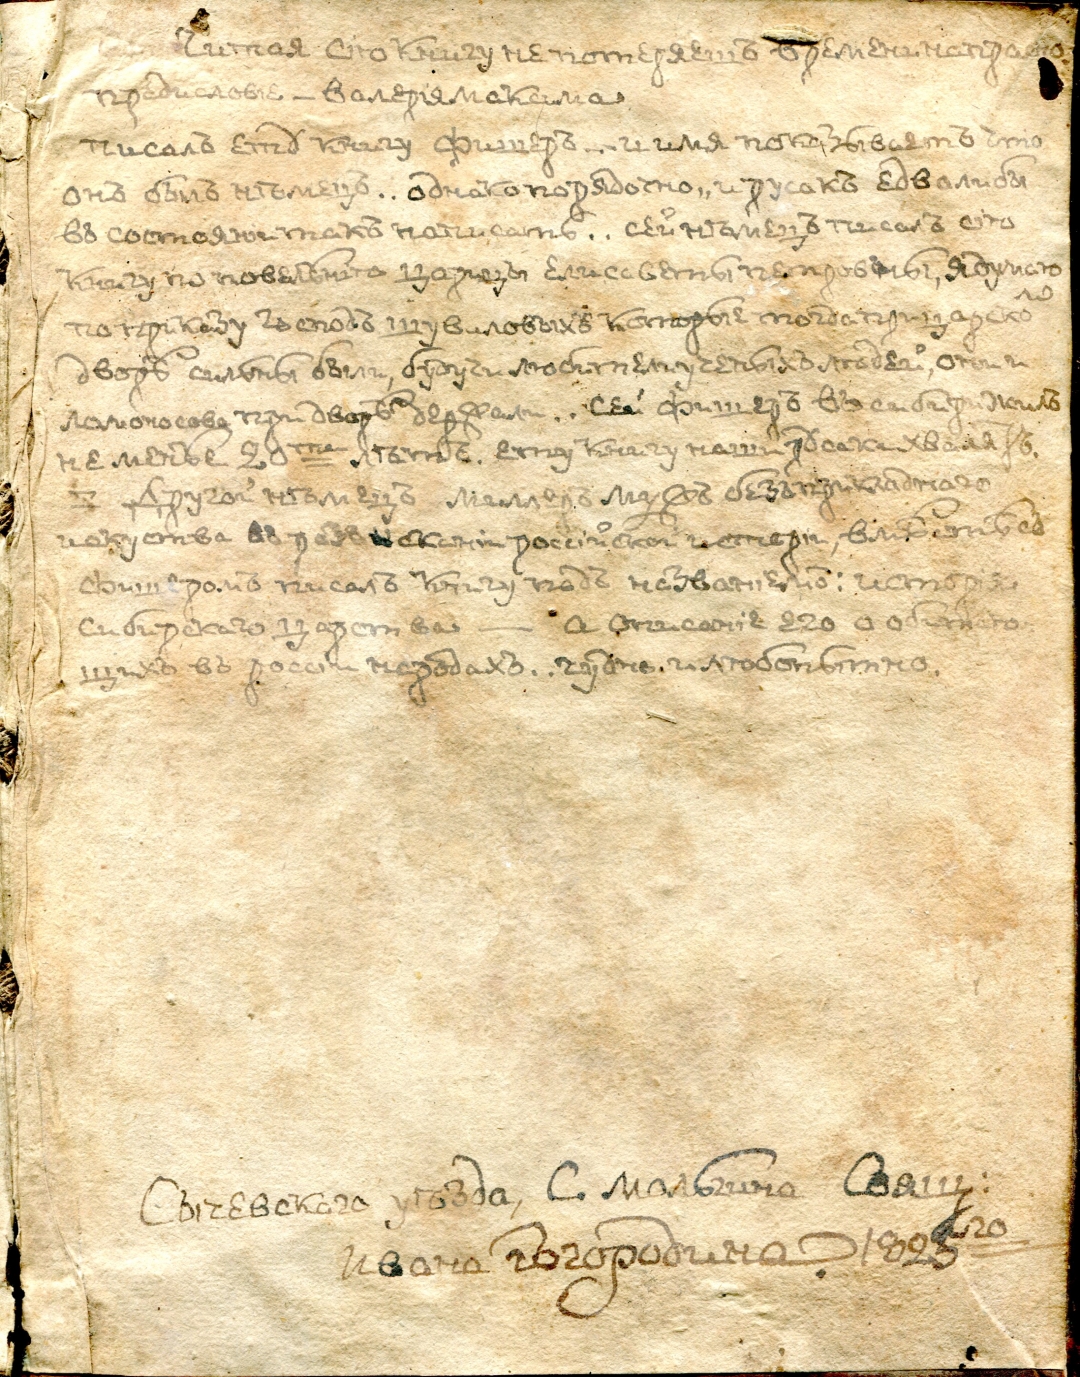 Читая сію книгу не потеряешъ времени напрасно.
предисловіе — валерія максима
писалъ ету книгу Фишеръ... и имя показываетъ что
онъ былъ нѣмецъ.. однако порядочно,, и русакъ едвалибы
въ состояніи такъ написать.. сей нѣмецъ писалъ сію
книгу по повелѣнію царицы елисаветы петровны, я думаю
по приказу господъ шуваловыхъ которые тогда при царско
мъ
дворѣ сильны были, будучи любители ученыхъ людей, они и
ломоносова при дворѣ держали.. сей Фишеръ въ сибири жилъ
не менѣе 20ти лѣтъ. ету книгу наши русаки хвалятъ.
= Другой нѣмецъ миллеръ мужъ безприкладнаго
искуства въ разысканіи россійской исторіи, вмѣстѣ съ
фишеромъ писалъ книгу подъ названіемъ: исторія
сибирскаго царства — а описаніе его о обитаю
щихъ въ россіи народахъ.. чудно. и любопытно.
Сычевскаго уѣзда, С. мальвина Свящ:
ивана Богородина 1825го